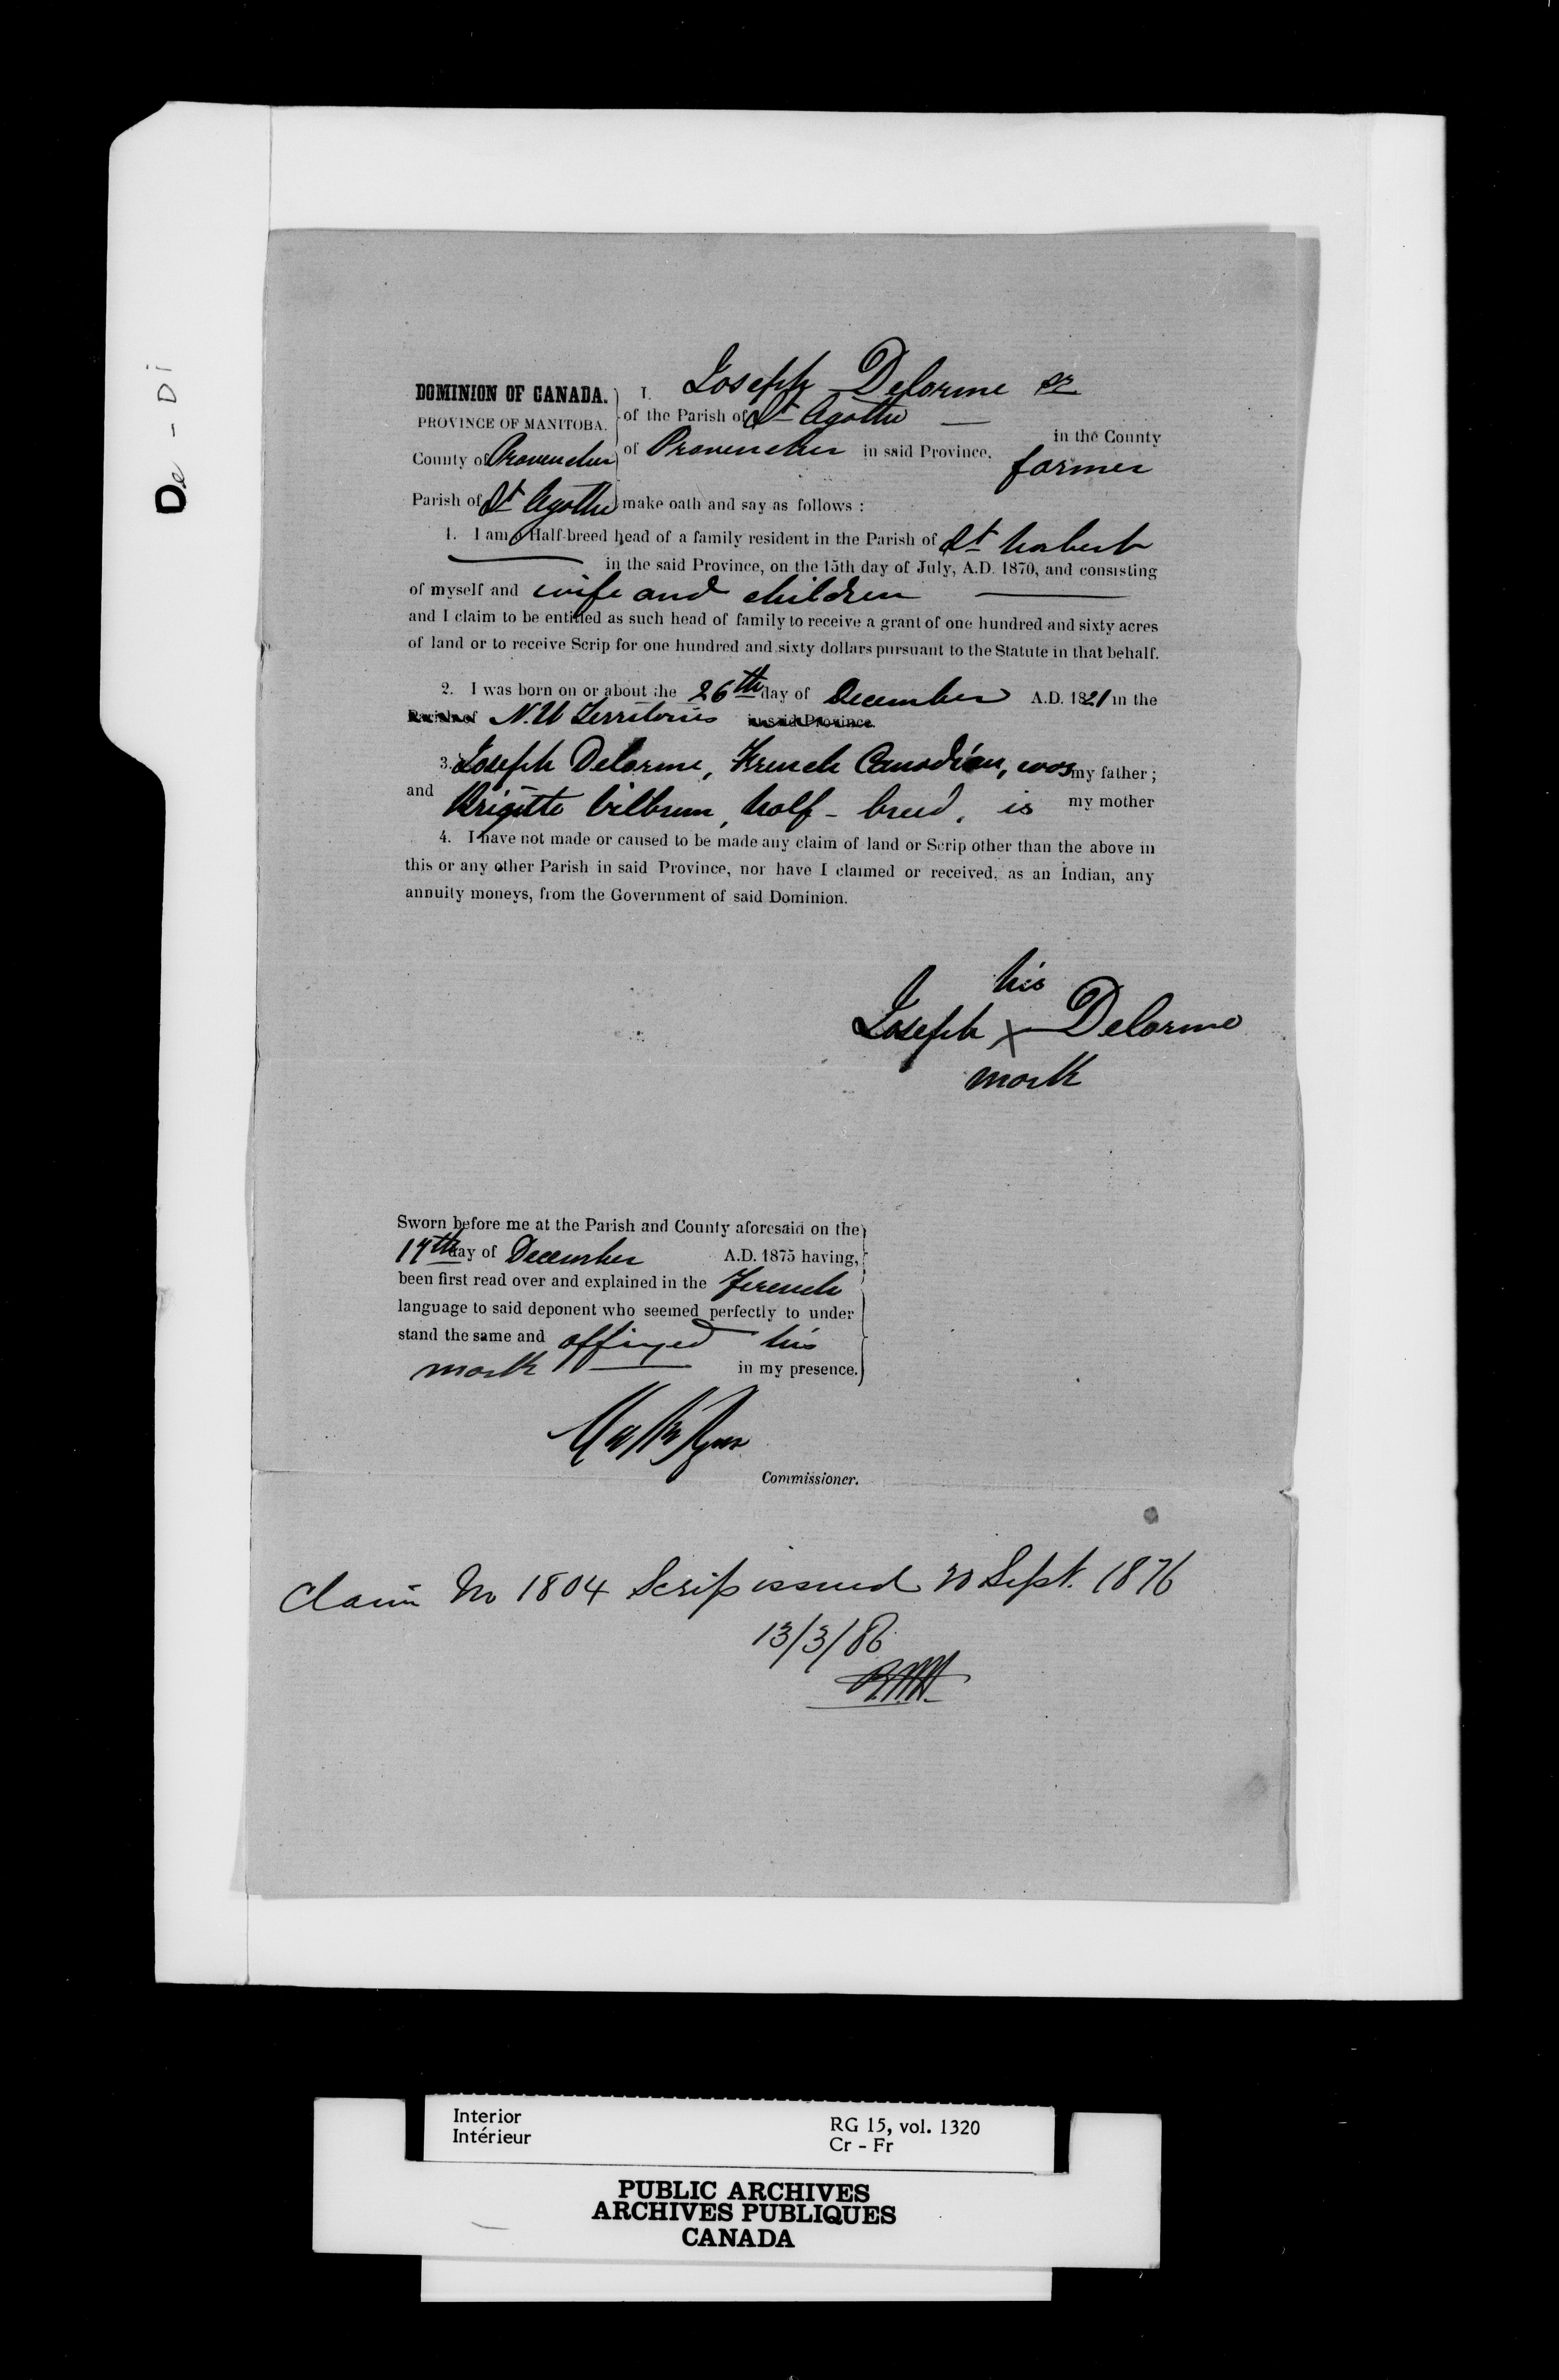 De - Di
DOMINION OF CANADA.
PROVINCE OF MANITOBA.
County of Provencher
Parish of St Agathe
I, Joseph Delorme sr
of the Parish of St Agathe — in the County
of Provencher in said Province, farmer
make oath and say as follows :
1. I am a Half-breed head of a family resident in the Parish of St Norbert
— in the said Province, on the 15th day of July, A.D. 1870, and consisting
of myself and wife and children —
and I claim to be entitled as such head of family to receive a grant of one hundred and sixty acres
of land or to receive Scrip for one hundred and sixty dollars pursuant to the Statute in that behalf.
2. I was born on or about the 26th day of December A.D. 1821 in the
Parish of N.W Territories in said Province.
3. Joseph Delorme, French Canadian, was my father ;
and Brigitte Vilbrun, half-breed, is my mother
4. I have not made or caused to be made any claim of land or Scrip other than the above in
this or any other Parish in said Province, nor have I claimed or received, as an Indian, any
annuity moneys, from the Government of said Dominion.
his
Joseph X Delorme
mark
Sworn before me at the Parish and County aforesaid on the
17th day of December A.D. 1875 having,
been first read over and explained in the French
language to said deponent who seemed perfectly to under
stand the same and affixed his
mark — in my presence.
Commissioner.
Claim No 1804 Scrip issued 20 Sept. 1876
13/3/86
Interior
Intérieur
RG 15, vol. 1320
Cr - Fr
PUBLIC ARCHIVES
ARCHIVES PUBLIQUES
CANADA